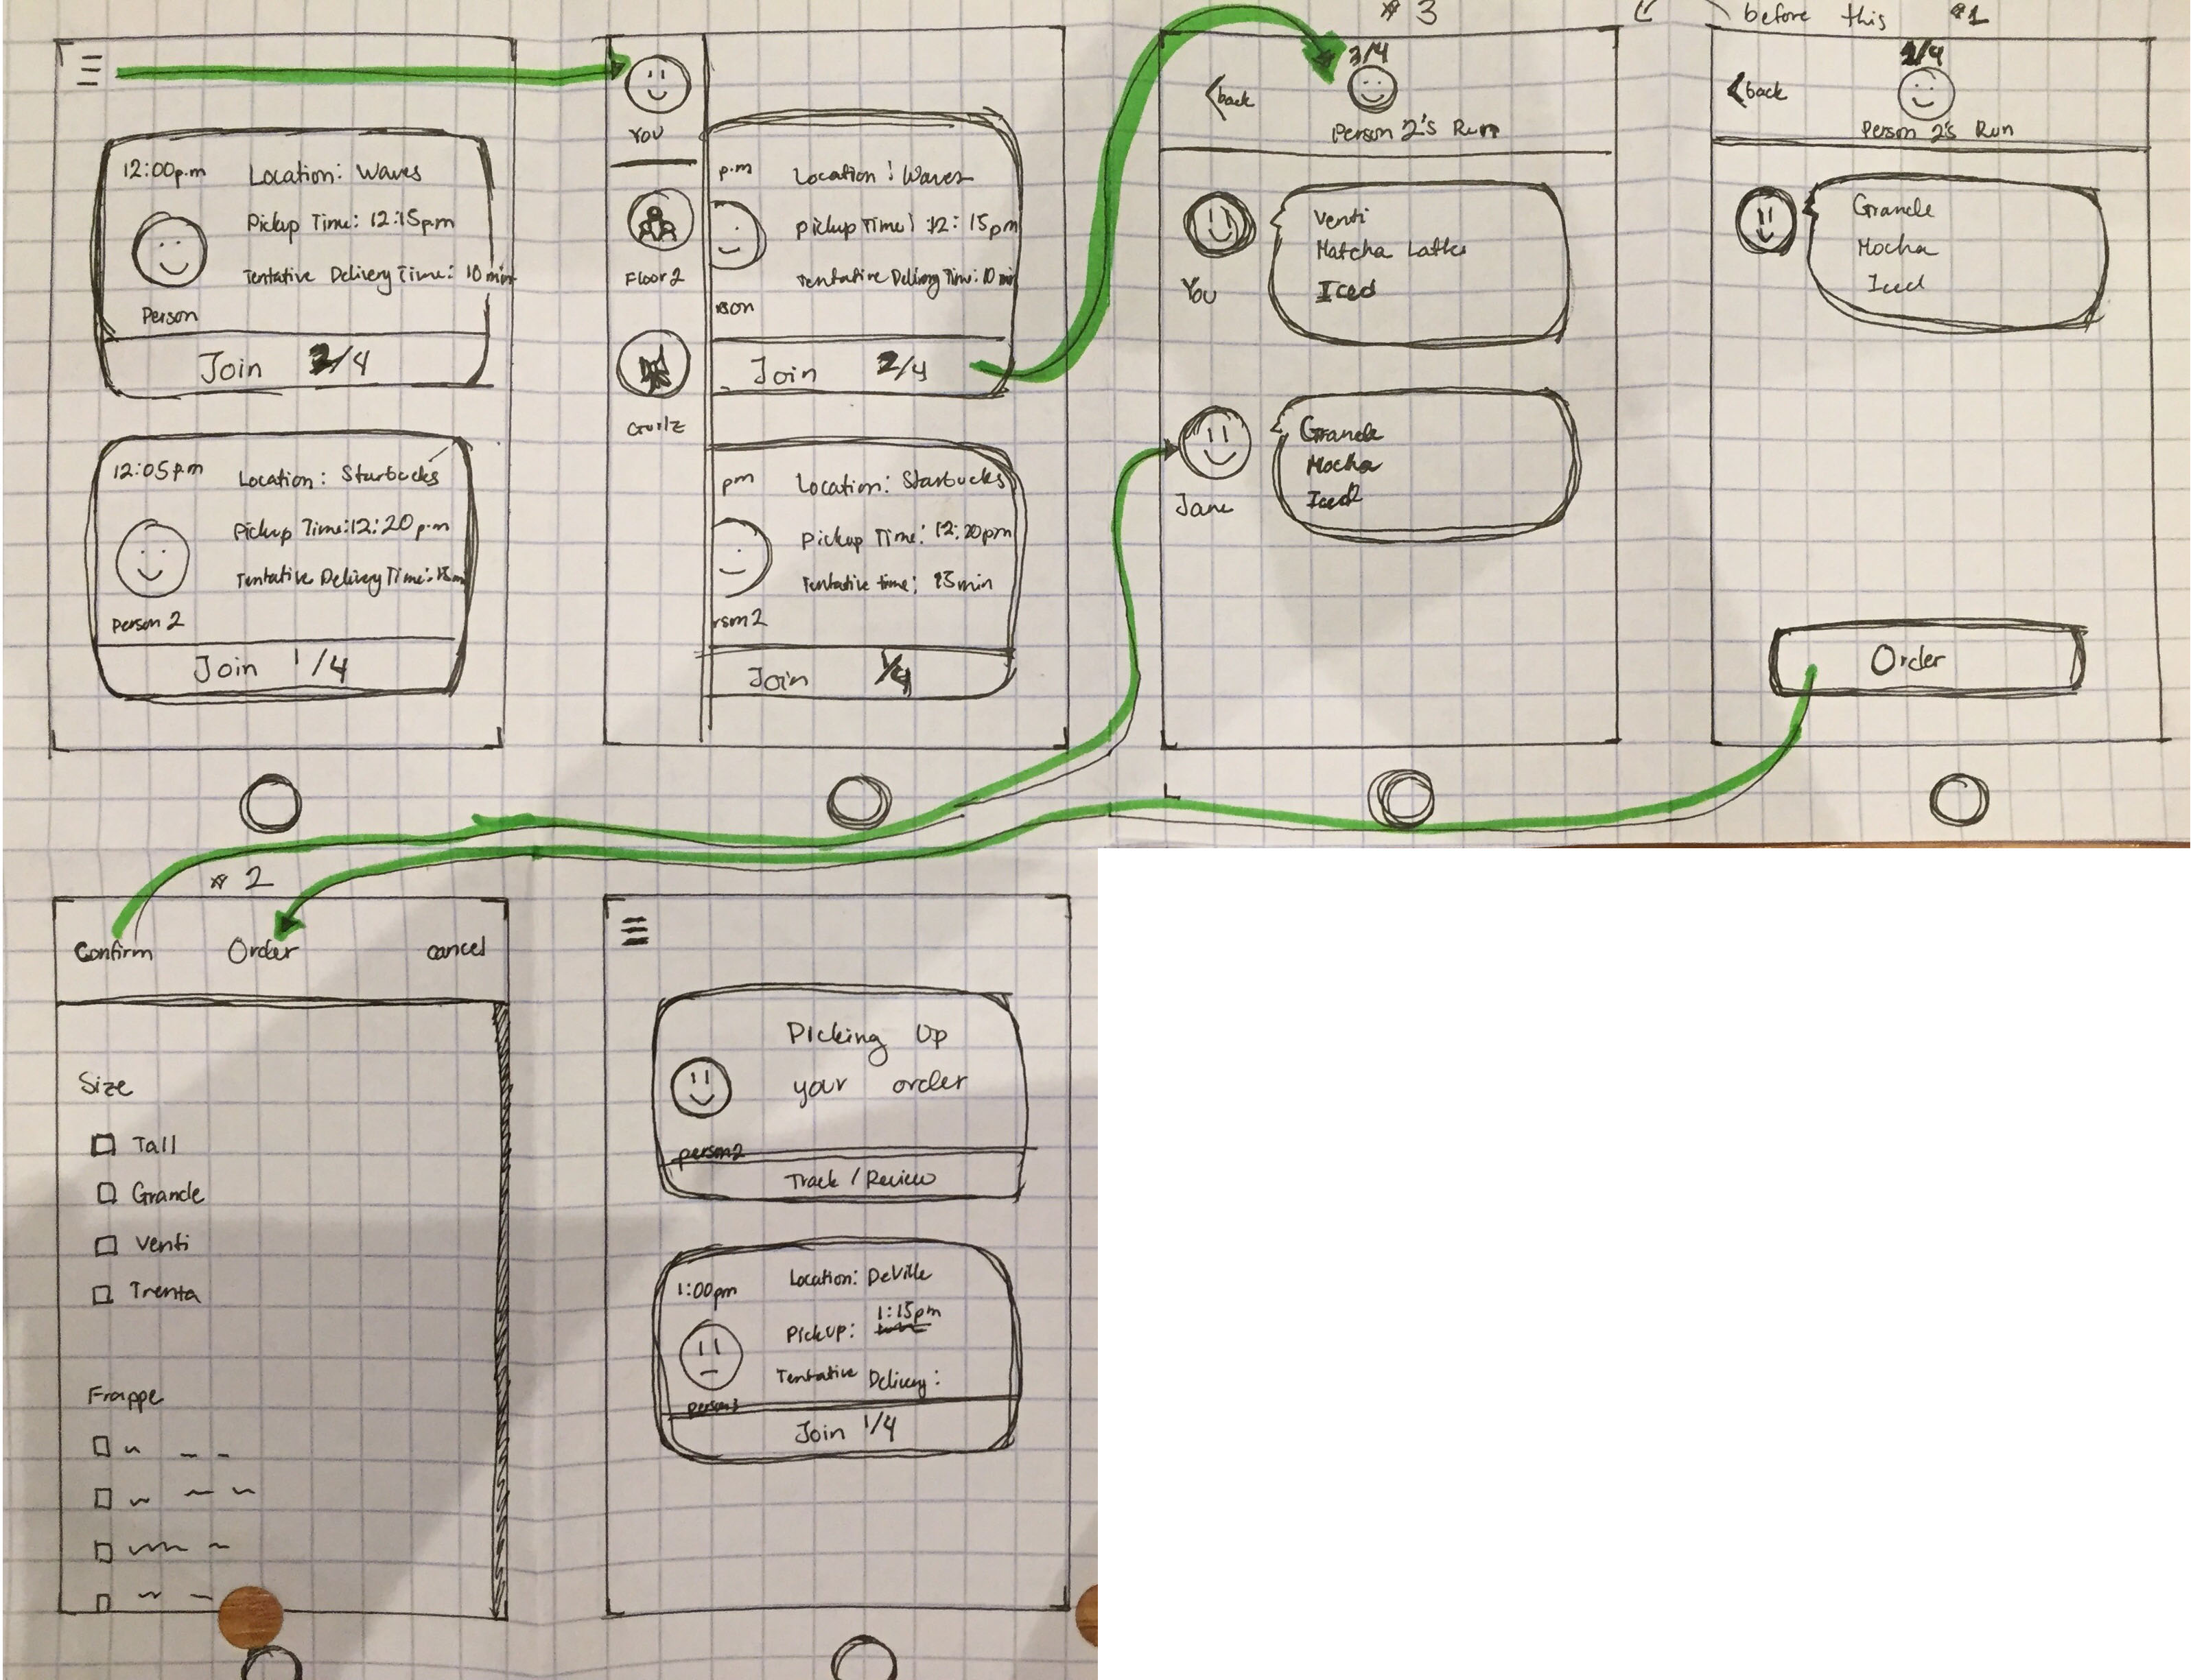 12:00p.m
Location: Waves
Pickup Time: 12:15pm
Tentative Delivery Time: 10 min
Person
Join 2/4
12:05pm
Location: Starbucks
Pickup Time: 12:20p.m
Tentative Delivery Time: 15m
person 2
Join 1/4
You
Floor 2
Gurlz
p.m
Location: Waves
pickup Time: 12:15pm
Tentative Delivery Time: 10 min
rson
Join 2/4
pm
Location: Starbucks
Pickup Time: 12:20pm
Tentative time: 15min
rson 2
Join 1/4
# 3
3/4
<back
Person 2's Run
You
Venti
Matcha Latte
Iced
Jane
Grande
Mocha
Iced
before this #1
2/4
<back
Person 2's Run
Grande
Mocha
Iced
Order
# 2
Confirm Order cancel
Size
Tall
Grande
Venti
Trenta
Frappe
Picking Up
your order
person2
Track / Review
1:00pm
Location: DeVille
1:15pm
Pickup:
Tentative Delivery:
person3
Join 1/4